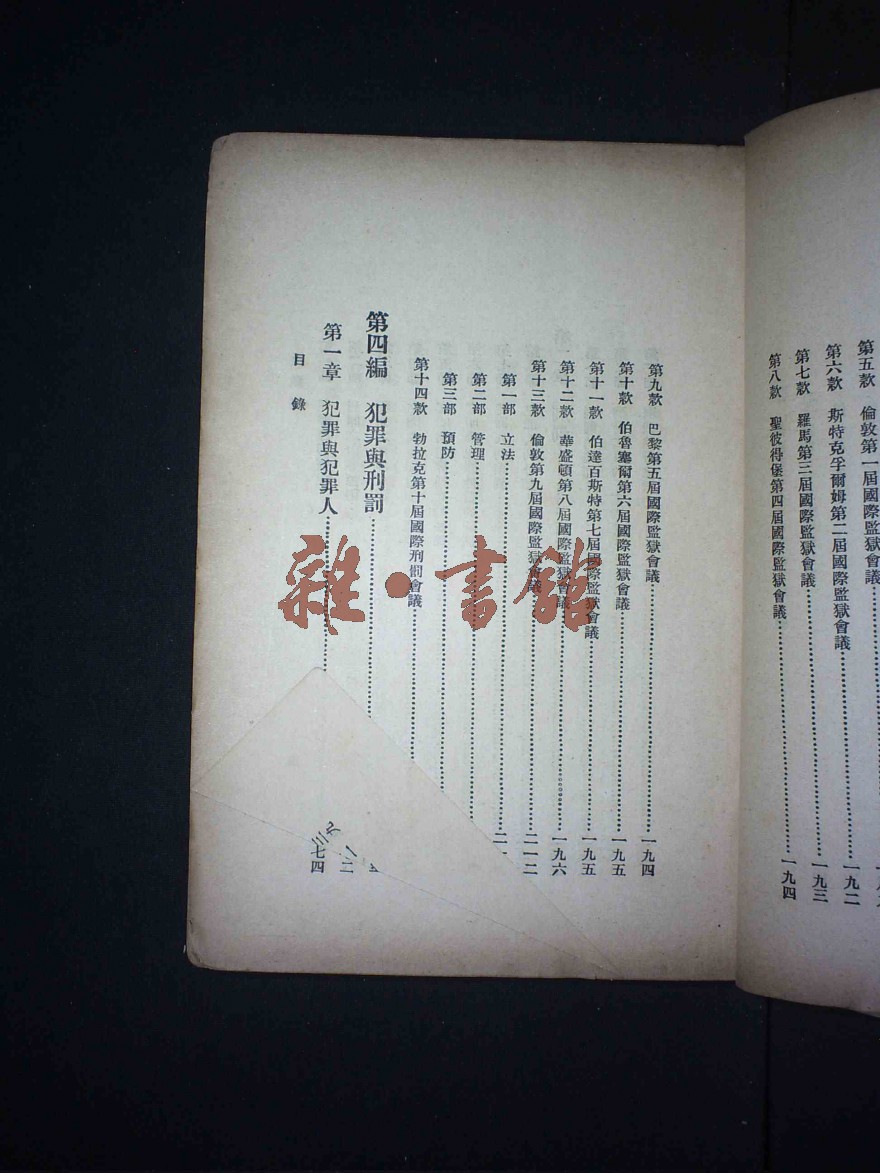 第五款 倫敦第一屆國際監獄會議
第六款 斯特克孚爾姆第二屆國際監獄會議……一九二
第七款 羅馬第三屆國際監獄會議……一九三
第八款 聖彼得堡第四屆國際監獄會議……一九四
第九款 巴黎第五屆國際監獄會議……一九四
第十款 伯魯塞爾第六屆國際監獄會議……一九五
第十一款 伯達百斯特第七屆國際監獄會議……一九五
第十二款 華盛頓第八屆國際監獄會議……一九六
第十三款 倫敦第九屆國際監獄會議……二一二
第一部 立法……二一
第二部 管理
第三部 預防
第十四款 勃拉克第十屆國際刑罰會議
第四編 犯罪與刑罰
第一章 犯罪與犯罪人
目錄
七四
雜·書館